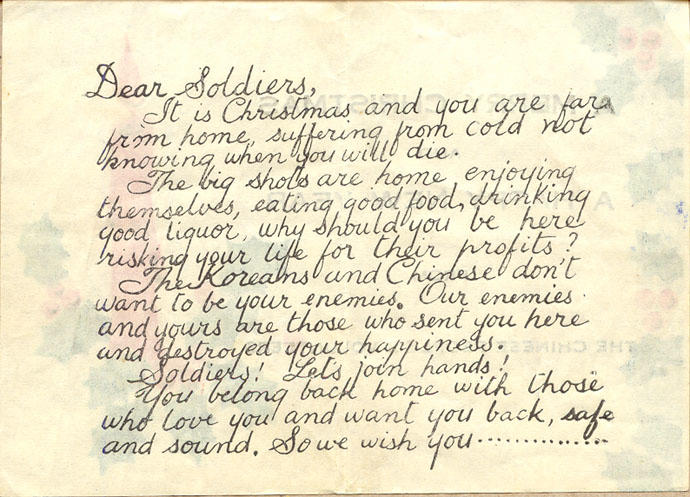 Dear Soldiers,
It is Christmas and you are far
from home, suffering from cold not
knowing when you will die.
The big shots are home enjoying
themselves, eating good food, drinking
good liquor, why should you be here
risking your life for their profits?
The Koreans and Chinese don't
want to be your enemies. Our enemies
and yours are those who sent you here
and destroyed your happiness.
Soldiers! Let's join hands!
You belong back home with those
who love you and want you back, safe
and sound. So we wish you...............